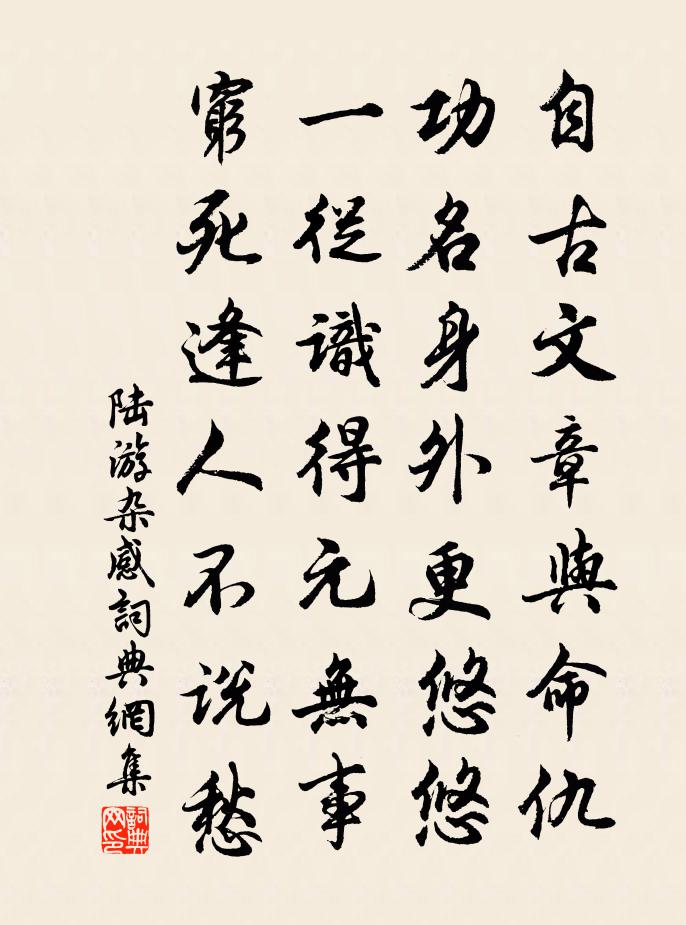 自古文章與命仇
功名身外更悠悠
一從識得元無事
窮死逢人不說愁
陸游杂感詞典網集
詞典网印